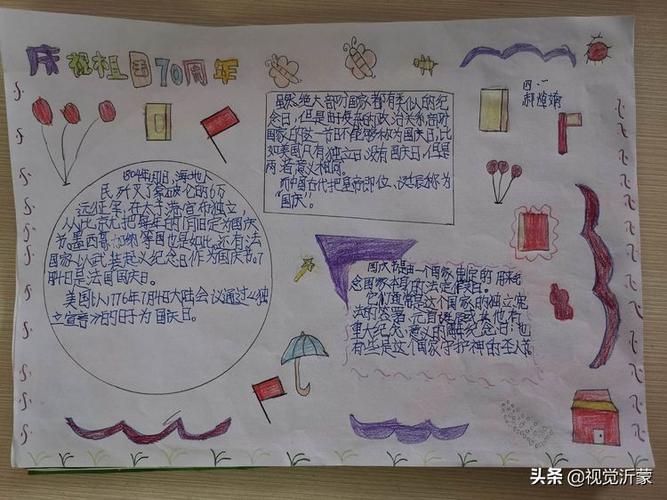 庆祝祖国70周年
虽然绝大部分国家都有类似的纪
念日,但是由于复杂的政治关系,部分
国家的这一节日不能够称为国庆日,比
如美国只有独立日,没有国庆日,但是
两者意义相同。
而中国古代把皇帝即位、诞辰称为
“国庆”。
四·一
1804年1月1日,海地人
民歼灭了拿破仑的6万
远征军,在太子港宣布独立
从此海地把每年的1月1日定为国庆
节。墨西哥 等国也是如此,还有法
国家以武装起义纪念日作为国庆节。7
月14日是法国国庆日。
美国以1776年7月4日大陆会议通过《独
立宣言》的日子为国庆日。
国庆节是由一个国家制定的用来纪
念国家本身的法定假日。
它们通常是这个国家的独立、宪
法的签署、元首诞辰或其他有
重大纪念意义的周年纪念日;也
有些是这个国家守护神的圣人节。
头条 @视觉沂蒙